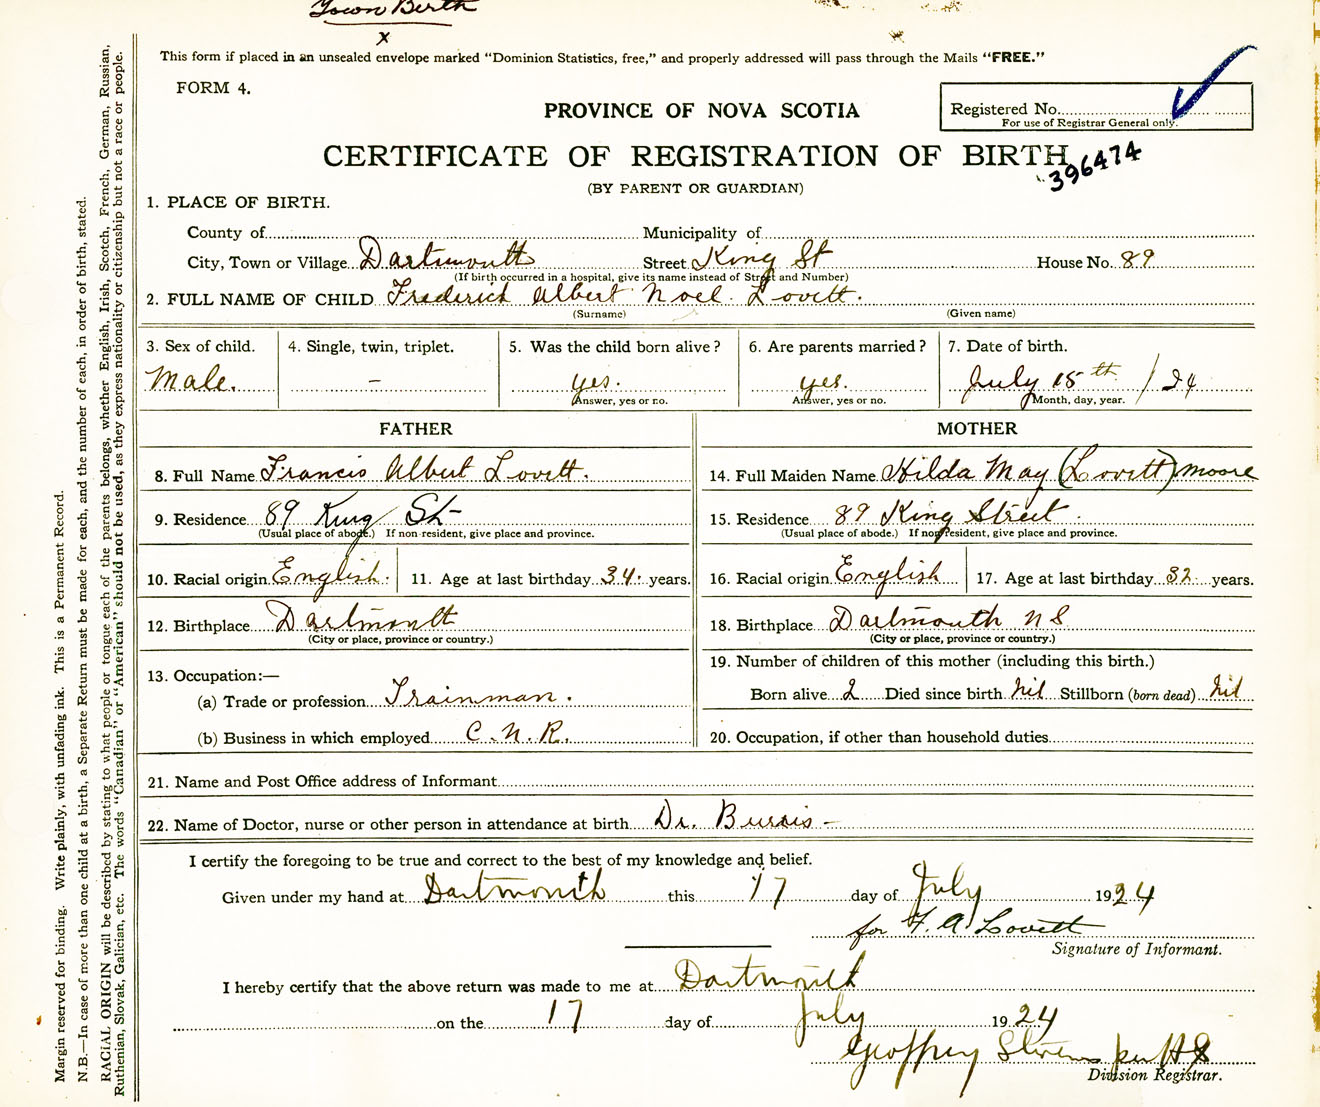 Town Birth
x
This form if placed in an unsealed envelope marked "Dominion Statistics, free," and properly addressed will pass through the Mails "FREE."
FORM 4.
PROVINCE OF NOVA SCOTIA
Registered No.
For use of Registrar General only.
CERTIFICATE OF REGISTRATION OF BIRTH
396474
(BY PARENT OR GUARDIAN)
1. PLACE OF BIRTH.
County of Municipality of
City, Town or Village Dartmouth Street King St House No. 89
(If birth occurred in a hospital, give its name instead of Street and Number)
2. FULL NAME OF CHILD Frederick Albert Noel Lovett.
(Surname) (Given name)
3. Sex of child. 4. Single, twin, triplet. 5. Was the child born alive? 6. Are parents married? 7. Date of birth.
Male. – yes. yes. July 15th / 24
Answer, yes or no. Answer, yes or no. Month, day, year.
FATHER MOTHER
8. Full Name Francis Albert Lovett. 14. Full Maiden Name Hilda May (Lovitt) Moore
9. Residence 89 King St- 15. Residence 89 King Street.
(Usual place of abode.) If non-resident, give place and province. (Usual place of abode.) If non-resident, give place and province.
10. Racial origin English. 11. Age at last birthday 34. years. 16. Racial origin English 17. Age at last birthday 32 years.
12. Birthplace Dartmouth 18. Birthplace Dartmouth N S
(City or place, province or country.) (City or place, province or country.)
13. Occupation:— 19. Number of children of this mother (including this birth.)
(a) Trade or profession Trainman. Born alive 2 Died since birth Nil Stillborn (born dead) Nil
(b) Business in which employed C. N. R. 20. Occupation, if other than household duties
21. Name and Post Office address of Informant
22. Name of Doctor, nurse or other person in attendance at birth Dr. Burris –
I certify the foregoing to be true and correct to the best of my knowledge and belief.
Given under my hand at Dartmouth this 17 day of July 1924
for F. A. Lovett
Signature of Informant.
I hereby certify that the above return was made to me at Dartmouth
on the 17 day of July 1924
Geoffrey Stevens per H S
Division Registrar.
Margin reserved for binding. Write plainly, with unfading ink. This is a Permanent Record.
N.B.—In case of more than one child at a birth, a Separate Return must be made for each, and the number of each, in order of birth, stated.
RACIAL ORIGIN will be described by stating to what people or tongue each of the parents belongs, whether English, Irish, Scotch, French, German, Russian,
Ruthenian, Slovak, Galician, etc. The words "Canadian" or "American" should not be used, as they express nationality or citizenship but not a race or people.